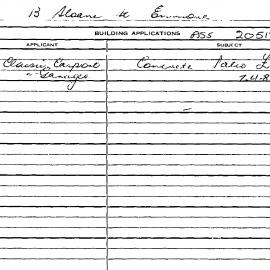 13 Sloane St Enmore
BUILDING APPLICATIONS PSS 2051
APPLICANT SUBJECT
Classic Carport Concrete Patio
Garages 7.4.8